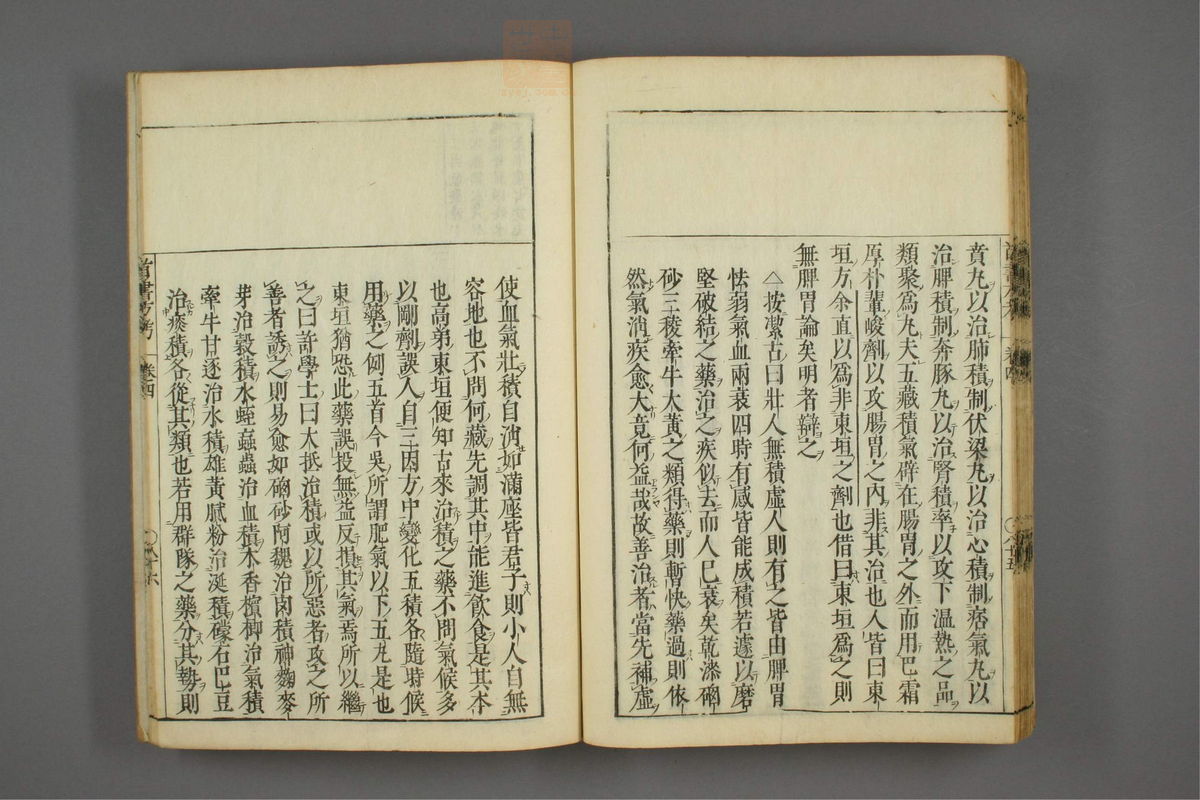 賁丸以治肺積制伏梁丸以治心積制痞氣丸以
治脾積制奔豚丸以治腎積率以攻下溫熱之品
類聚爲丸夫五藏積氣癖在腸胃之外而用巴霜
厚朴輩峻劑以攻腸胃之内非其治也人皆曰東
垣方余直以爲非東垣之劑也借曰東垣爲之則
無脾胃論矣明者辯之
△按潔古曰壯人無積虛人則有之皆由脾胃
怯弱氣血兩衰四時有感皆能成積若遽以磨
堅破結之藥治之疾似去而人已衰矣乾漆硇
砂三稜牽牛大黃之類得藥則暫快藥過則依
然氣消疾愈大竟何益哉故善治者當先補虛
使血氣壯積自消如滿座皆君子則小人自無
容地也不問何藏先調其中能進飲食是其本
也高弟東垣便知古來治積之藥不問氣候多
以剛劑誤人自三因方中變化五積各隨時候
用藥之例五首今吳所謂肥氣以下五丸是也
東垣猶恐此藥誤投無益反損其氣焉所以繼
之曰許學士曰大抵治積或以所惡者攻之所
善者誘之則易愈如硇砂阿魏治肉積神麴麥
芽治穀積水蛭蝱蟲治血積木香檳榔治氣積
牽牛甘遂治水積雄黃膩粉治涎積礞石巴豆
治痰積各從其類也若用群隊之藥分其勢則
卷四